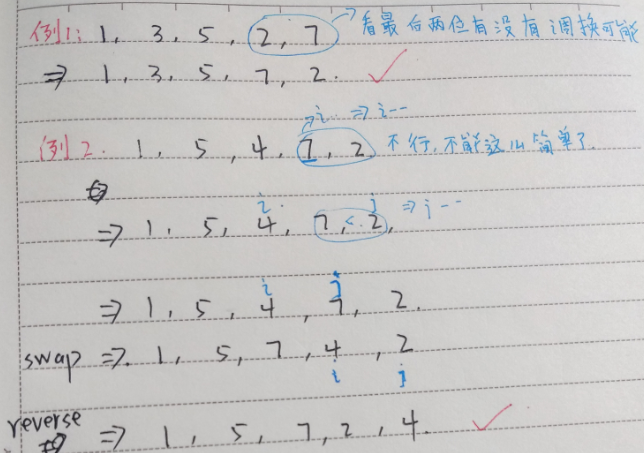 例1: 1, 3, 5, 2, 7 → 看最后两位有没有调换可能
⇒ 1, 3, 5, 7, 2. ✓
i ⇒ i--
例2. 1, 5, 4, 7, 2 不行,不能这么简单了.
i j ⇒ j--
⇒ 1, 5, 4, 7, 2,
i j
⇒ 1, 5, 4, 7, 2.
swap ⇒ 1, 5, 7, 4, 2
i j
reverse ⇒ 1, 5, 7, 2, 4. ✓